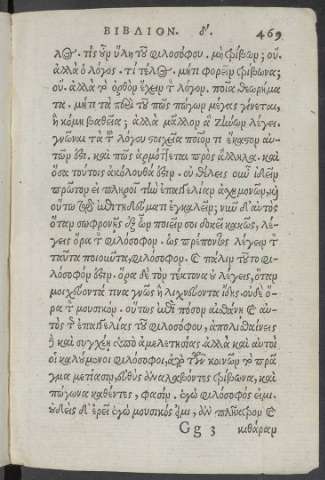 ΒΙΒΛΙΟΝ. δ'. 469
λος. τίς οὖν ὕλη τοῦ φιλοσόφου. μὴ τρίβων; οὔ.
ἀλλὰ ὁ λόγος. τί τέλος. μή τι φορεῖν τρίβωνα;
οὔ. ἀλλὰ τὸ ὀρθὸν ἔχειν τὸν λόγον. ποῖα θεωρήμα
τα. μή τι τὰ περὶ τοῦ πῶς πώγων μέγας γένηται,
ἢ κόμη βαθεῖα; ἀλλὰ μᾶλλον ἃ Ζήνων λέγει.
γνῶναι τὰ τοῦ λόγου στοιχεῖα ποῖόν τι ἕκαστον αὐ
τῶν ἐστι. καὶ πῶς ἁρμόττεται πρὸς ἄλληλα. καὶ
ὅσα τούτοις ἀκόλουθά ἐστιν. οὐ θέλεις οὖν ἰδεῖν
πρῶτον εἰ πληροῖ τὴν ἐπαγγελίαν ἀσχημονῶν, καὶ
οὕτω τῷ ἐπιτηδεύματι ἐγκαλεῖν; νῦν δ' αὐτὸς
ὅταν σωφρονῇς ἐξ ὧν ποιεῖν σοι δοκεῖ κακῶς, λέ-
γεις ὅρα τὸν φιλόσοφον. ὡς πρέποντος λέγειν τὸν
ταῦτα ποιοῦντα, φιλόσοφον. καὶ πάλιν τοῦτο φι-
λόσοφόν ἐστιν. ὅρα δὲ τὸν τέκτονα οὐ λέγεις, ὅταν
μοιχεύοντά τινα γνῶς ἢ λιχνεύοντα ἴδῃς· οὐδὲ ὅ-
ρα τὸν μουσικόν. οὕτως ἐπὶ πόσον αἰσθάνῃ καὶ αὐ-
τὸς τῆς ἐπαγγελίας τοῦ φιλοσόφου, ἀπολισθαίνεις
δὲ καὶ συγχέῃ ὑπὸ ἀμελετησίας. ἀλλὰ καὶ αὐτοὶ
οἱ καλούμενοι φιλόσοφοι, ἀπὸ τῶν κοινῶν τὸ πρᾶ
γμα μετίασιν, εὐθὺς ἀναλαβόντες τρίβωνα, καὶ
πώγωνα καθέντες, φασὶν. ἐγὼ φιλόσοφός εἰμι.
οὐδεὶς δ' ἐρεῖ ἐγὼ μουσικός εἰμι, ἂν πλῆκτρον καὶ
Gg 3 κιθάραν